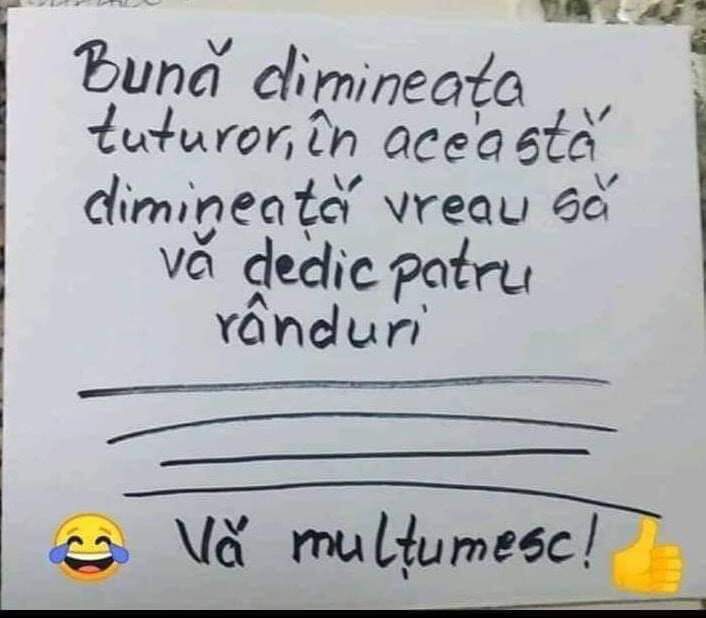 Bună dimineața
tuturor, în această
dimineață vreau să
vă dedic patru
rânduri
Vă mulțumesc!